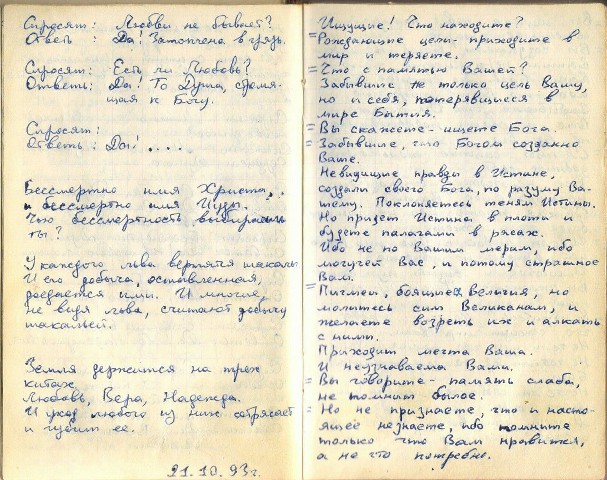 Спросят: Любви не бывает?
Ответь: Да! Затоптана в грязь.
Спросят: Есть ли Любовь?
Ответь: Да! То Душа, стремя-
щаяся к Богу.
Спросят:
Ответь: Да! ....
Бессмертно имя Христа,
и бессмертно имя Иуды.
Чью бессмертность выбираешь
ты?
У каждого льва вертятся шакалы
И его добыча, оставленная,
доедается ими. И многие,
не видя льва, считают добычу
шакальей.
Земля держится на трех
китах.
Любовь, Вера, Надежда.
И уход любого из них сотрясает
и губит ее.
21.10.93г.
Ищущие! Что находите?
= Рождающие цели - приходите в
мир и теряете.
= Что с памятью Вашей?
Забывшие не только цель Вашу,
но и себя, потерявшиеся в
мире Бытия.
= Вы скажете - ищете Бога.
= Забывшие, что Богом создано
Ваше.
Невидящие правды в Истине,
создали своего Бога, по разуму Ва-
шему. Поклоняетесь теням Истины.
Но придет Истина в плоти и
будете палачами в рясах.
Ибо не по Вашим мерам, ибо
могучей Вас, и потому страшное
Вам.
= Пигмеи, боящиеся Величия, но
молитесь сим Великанам, и
желаете возреть их и алкать
с ними.
Приходит мечта Ваша.
И неузнаваема Вами.
= Вы говорите - память слаба,
не помнит былое.
= Но не признаете, что и насто-
ящее не знаете, ибо помните
только что Вам нравится,
а не что потребно.